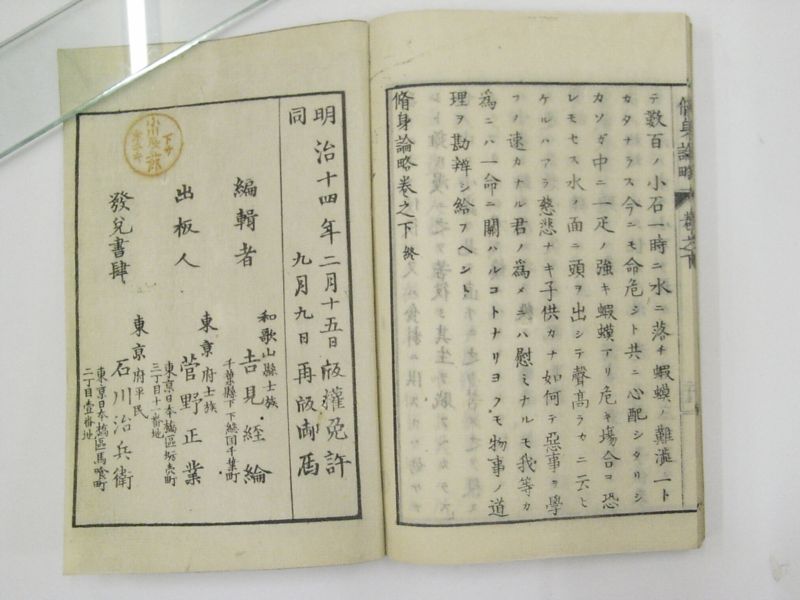 脩身論略 巻之下
テ数百ノ小石一時ニ水ニ落チ蝦蟆ノ難澁一ト
カタナラス今ニモ命危シト共ニ心配シタリシ
カソガ中ニ一疋ノ強キ蝦蟆アリ危キ塲合ヨ恐
レモセス水ノ面ニ頭ヲ出シテ聲高ラカニ云ヒ
ケルハアラ慈悲ナキ子供カナ如何テ惡事ヲ學
フノ速カナル君ノ為メニハ慰ミナルモ我等カ
為ニハ一命ニ關ハルコトナリヨクモ物事ノ道
理ヲ勘辨シ給フヘシト
脩身論略巻之下 終
明治十四年二月十五日版權免許
同 九月九日再版御届
編輯者
和歌山縣士族
吉見經綸
千葉縣下下總國千葉町
出板人
東京府士族
菅野正業
東京日本橋區
三丁目十一番地
發兌書肆
東京府平民
石川治兵衛
東京日本橋區馬喰町
二丁目壹番地